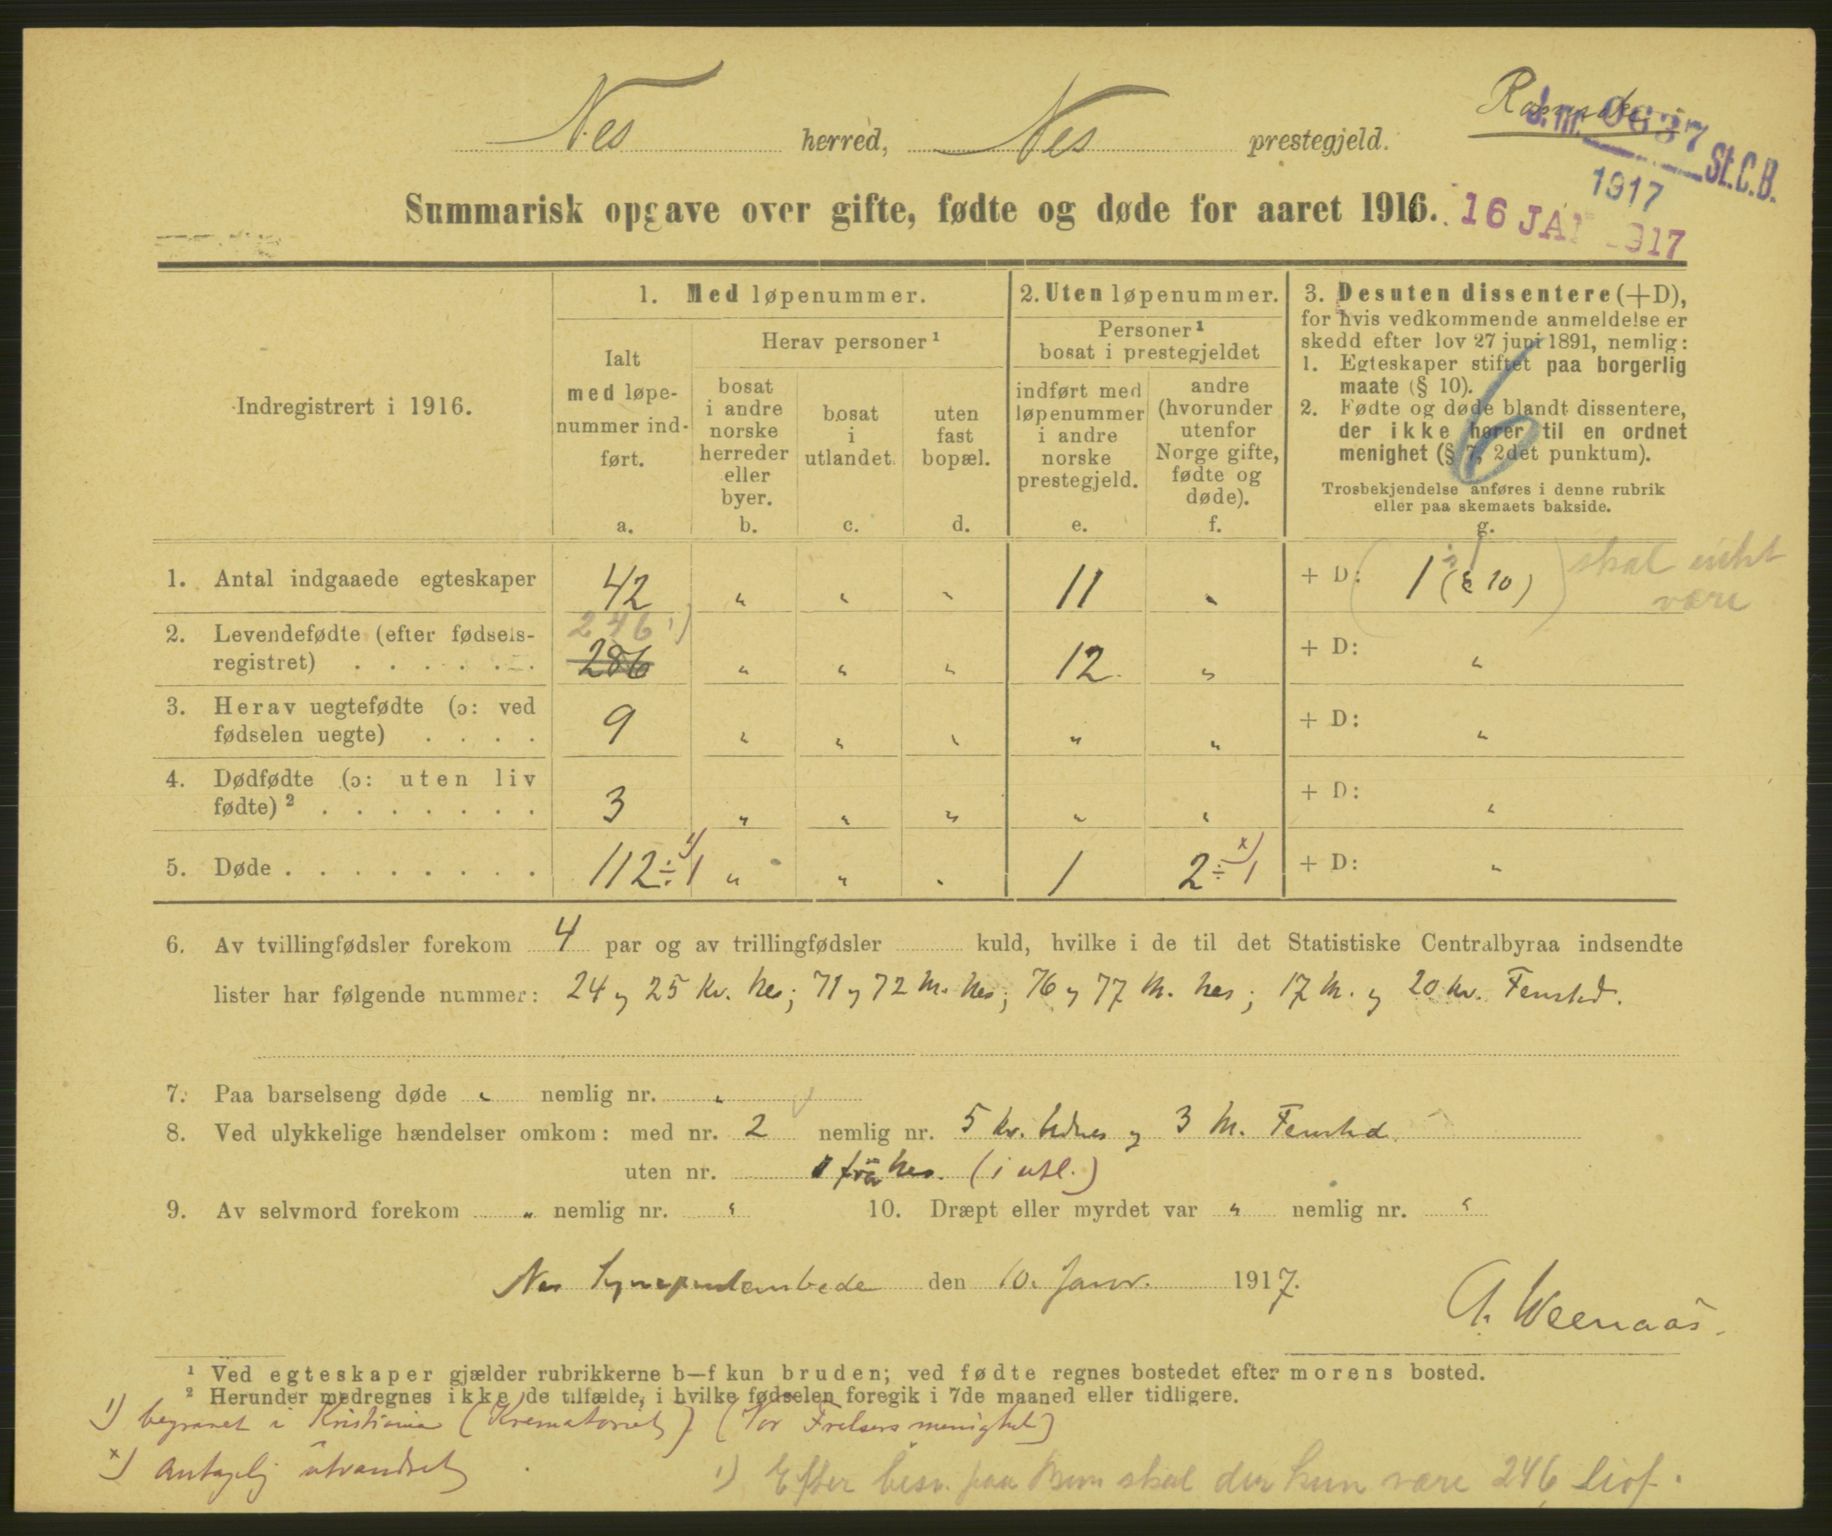 Nes herred, Nes prestegjeld.
J.nr. 0637 St.C.B.
1917
Summarisk opgave over gifte, fødte og døde for aaret 1916.
16 JAN 1917
Indregistrert i 1916.
1. Med løpenummer.
Ialt med løpe-
nummer ind-
ført.
a.
Herav personer ¹
bosat
i andre
norske
herreder
eller
byer.
b.
bosat
i
utlandet.
c.
uten
fast
bopæl.
d.
2. Uten løpenummer.
Personer ¹
bosat i prestegjeldet
indført med
løpenummer
i andre
norske
prestegjeld.
e.
andre
(hvorunder
utenfor
Norge gifte,
fødte og
døde).
f.
3. Desuten dissentere (+D),
for hvis vedkommende anmeldelse er
skedd efter lov 27 juni 1891, nemlig:
1. Egteskaper stiftet paa borgerlig
maate (§ 10).
2. Fødte og døde blandt dissentere,
der ikke hører til en ordnet
menighet (§ 7, 2det punktum).
Trosbekjendelse anføres i denne rubrik
eller paa skemaets bakside.
g.
6
1. Antal indgaaede egteskaper 42 „ „ „ 11 „ + D: 1 (§ 10) skal intet
være
2. Levendefødte (efter fødsels- 246 ¹)
registret) . . . . . . 286 „ „ „ 12 „ + D: „
3. Herav uegtefødte (ɔ: ved
fødselen uegte) . . . . 9 „ „ „ „ „ + D: „
4. Dødfødte (ɔ: uten liv
fødte) ² . . . . . . . 3 „ „ „ „ „ + D: „
5. Døde . . . . . . . . 112 ÷ 1 ¹) „ „ „ 1 2 ÷ 1 ˣ) + D: „
6. Av tvillingfødsler forekom 4 par og av trillingfødsler kuld, hvilke i de til det Statistiske Centralbyraa indsendte
lister har følgende nummer: 24 og 25 kv. Nes; 71 og 72 M. Nes; 76 og 77 M. Nes; 17 M. og 20 kv. Fenstad.
7. Paa barselseng døde „ nemlig nr. „
8. Ved ulykkelige hændelser omkom: med nr. 2 nemlig nr. 5 kv. Udnes og 3 M. Fenstad.
uten nr. 1 fra Nes. (i utl.)
9. Av selvmord forekom „ nemlig nr. „ 10. Dræpt eller myrdet var „ nemlig nr. „
Nes den 10. Janr. 1917.
A. Weenaas.
¹ Ved egteskaper gjælder rubrikkerne b—f kun bruden; ved fødte regnes bostedet efter morens bosted.
² Herunder medregnes ikke de tilfælde, i hvilke fødselen foregik i 7de maaned eller tidligere.
¹) begravet i Kristiania (Krematoriet) (Vor Frelsers menighet)
ˣ) Antagelig utvandret
¹) Efter besv. paa skal der kun være 246